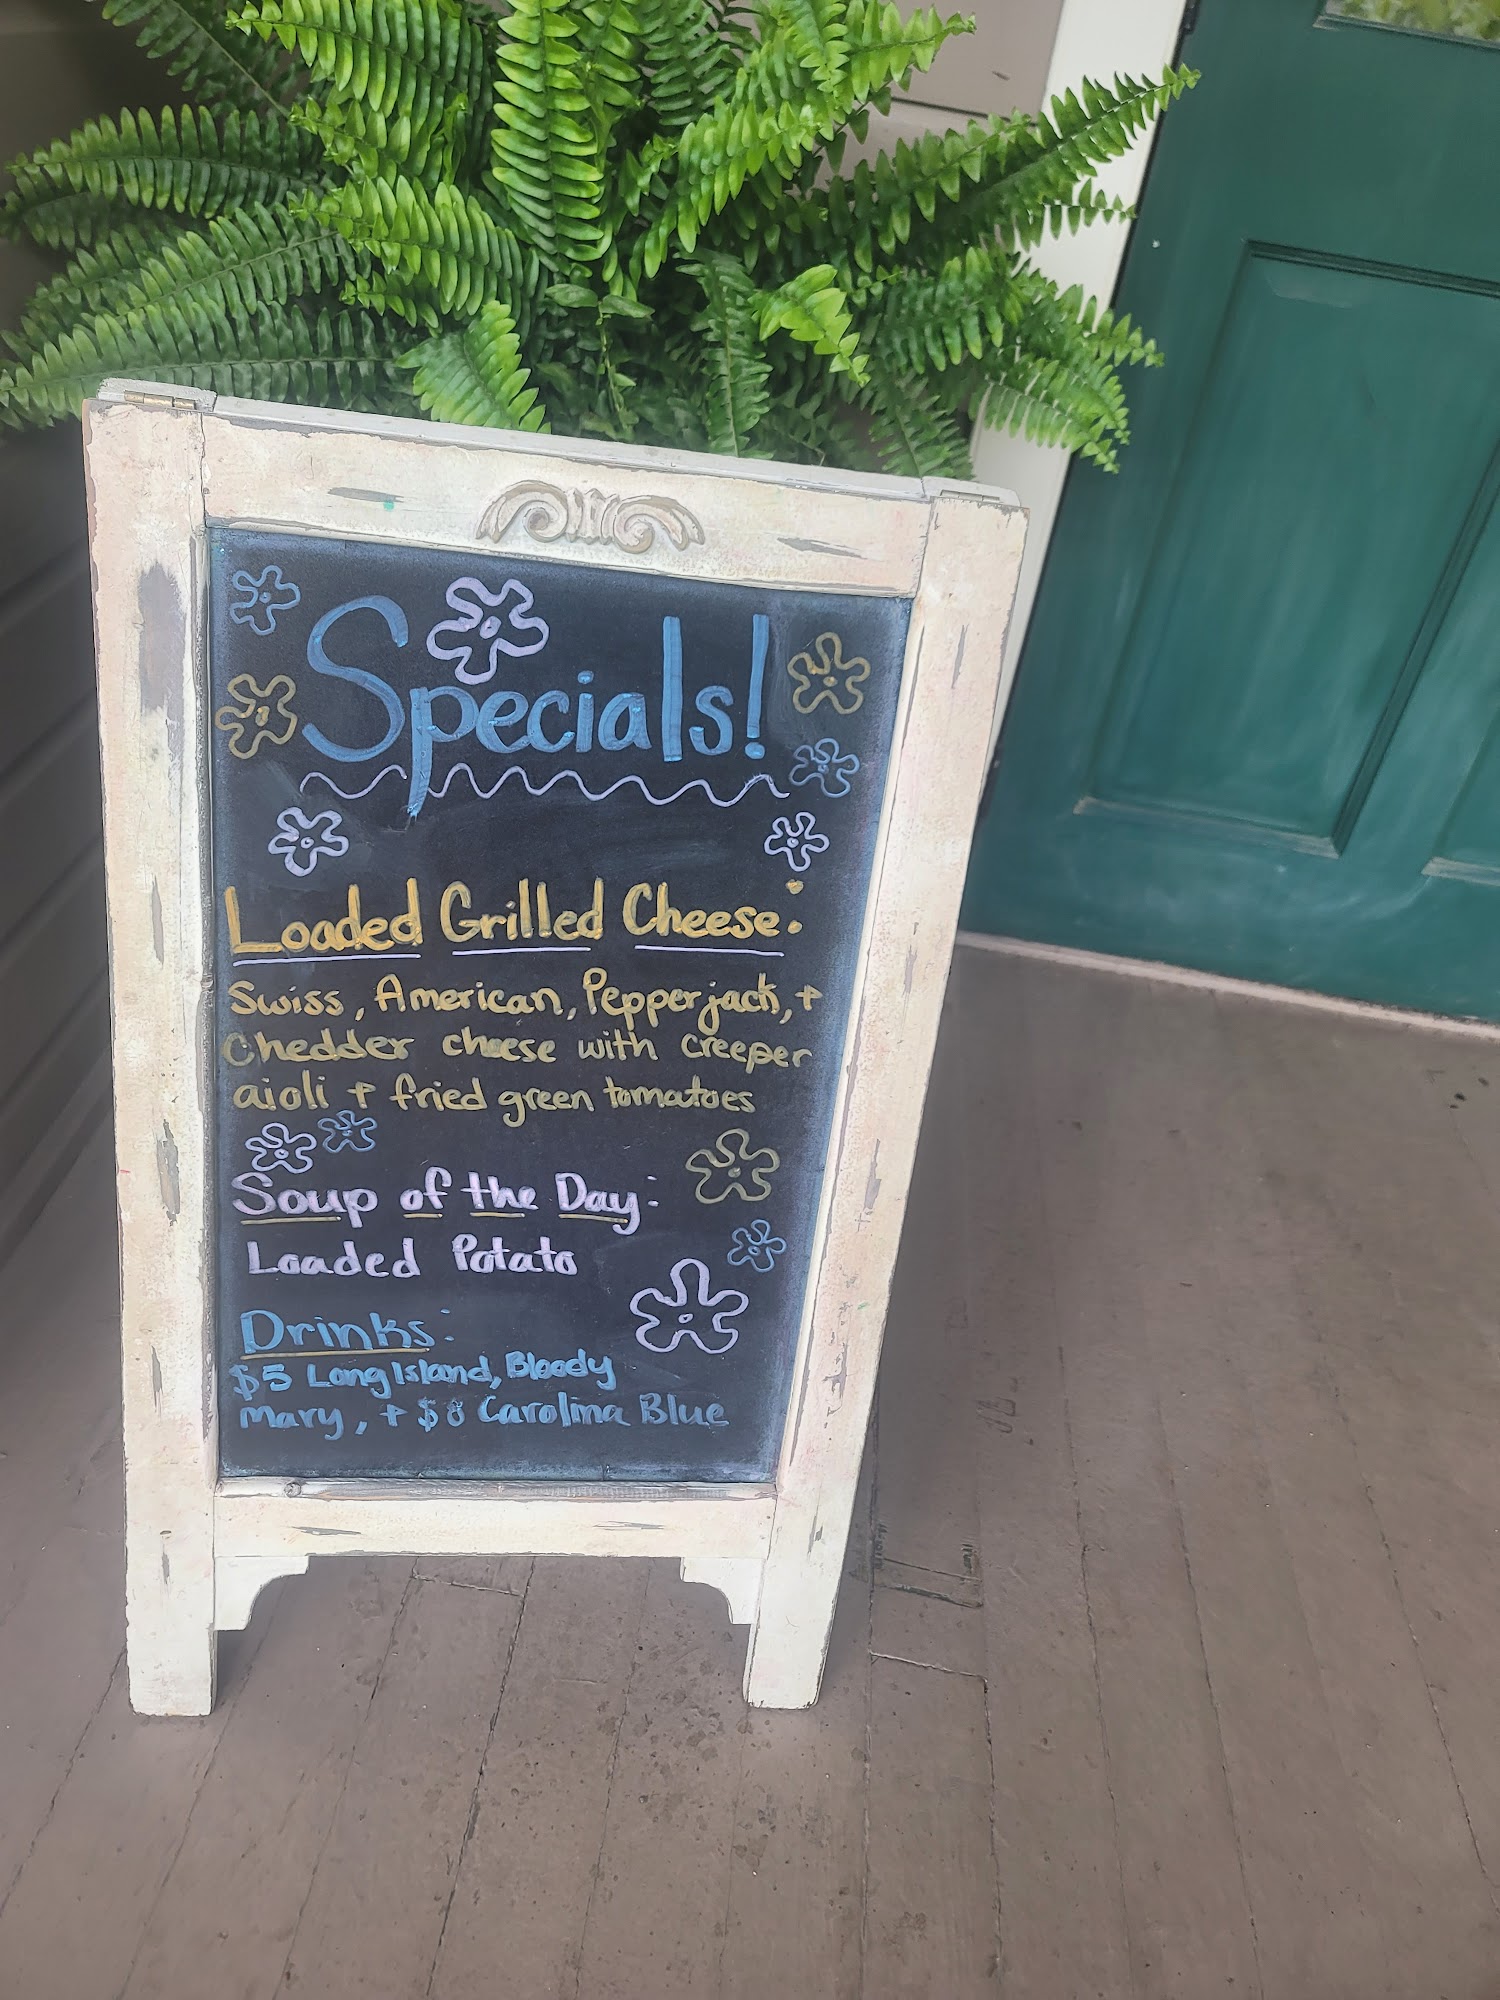 Specials!
Loaded Grilled Cheese:
Swiss, American, Pepperjack, +
Chedder cheese with creeper
aioli + fried green tomatoes
Soup of the Day:
Loaded Potato
Drinks:
$5 Long Island, Bloody
Mary, + $8 Carolina Blue